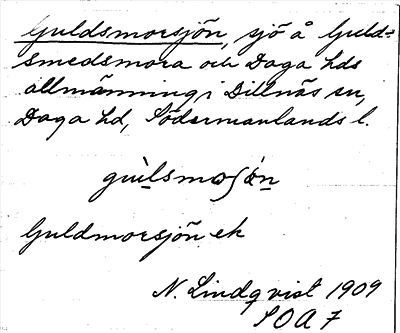 Guldsmorsjön, sjö å Guld-
smedsmora och Daga hds
allmänning i Dillnäs sn,
Daga hd, Södermanlands l.
gùlsmoʃòn
Guldmorsjön ek
N. Lindqvist 1909
SOA 7